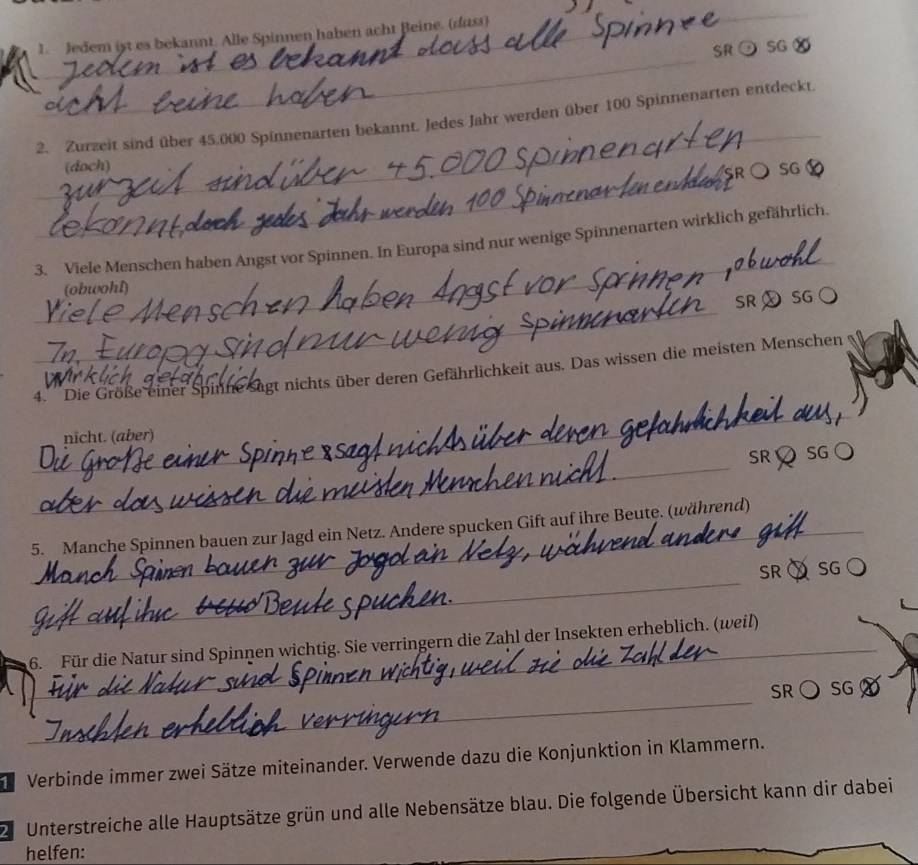 1. Jedem ist es bekannt. Alle Spinnen haben acht Beine. (dass)
Jedem ist es bekannt dass alle Spinnee
SR ○ SG ⊗
acht beine haben
2. Zurzeit sind über 45.000 Spinnenarten bekannt. Jedes Jahr werden über 100 Spinnenarten entdeckt.
(doch)
zurzeit sind über 45.000 spinnenarten
SR ○ SG ⊗
bekannt, doch jedes Jahr werden 100 Spinnenarten entdeckt
3. Viele Menschen haben Angst vor Spinnen. In Europa sind nur wenige Spinnenarten wirklich gefährlich.
(obwohl)
Viele Menschen haben Angst vor Sprinnen, obwohl
SR ⊗ SG ○
In Europa sind nur wenig spinnenarten
wirklich gefährlich
4. Die Größe einer Spinne sagt nichts über deren Gefährlichkeit aus. Das wissen die meisten Menschen
nicht. (aber)
Die Große einer Spinne sagt nichts über deren gefahrlichkeit aus,
SR ⊗ SG ○
aber das wissen die meisten Menschen nicht.
5. Manche Spinnen bauen zur Jagd ein Netz. Andere spucken Gift auf ihre Beute. (während)
Manch Spinen bauen zur Jagd ein Netz, während andere gift
SR ⊗ SG ○
gift auf ihre Beute spucken.
6. Für die Natur sind Spinnen wichtig. Sie verringern die Zahl der Insekten erheblich. (weil)
Für die Natur sind Spinnen wichtig, weil sie die Zahl der
SR ○ SG ⊗
Insekten erheblich verringern
1 Verbinde immer zwei Sätze miteinander. Verwende dazu die Konjunktion in Klammern.
2 Unterstreiche alle Hauptsätze grün und alle Nebensätze blau. Die folgende Übersicht kann dir dabei
helfen: